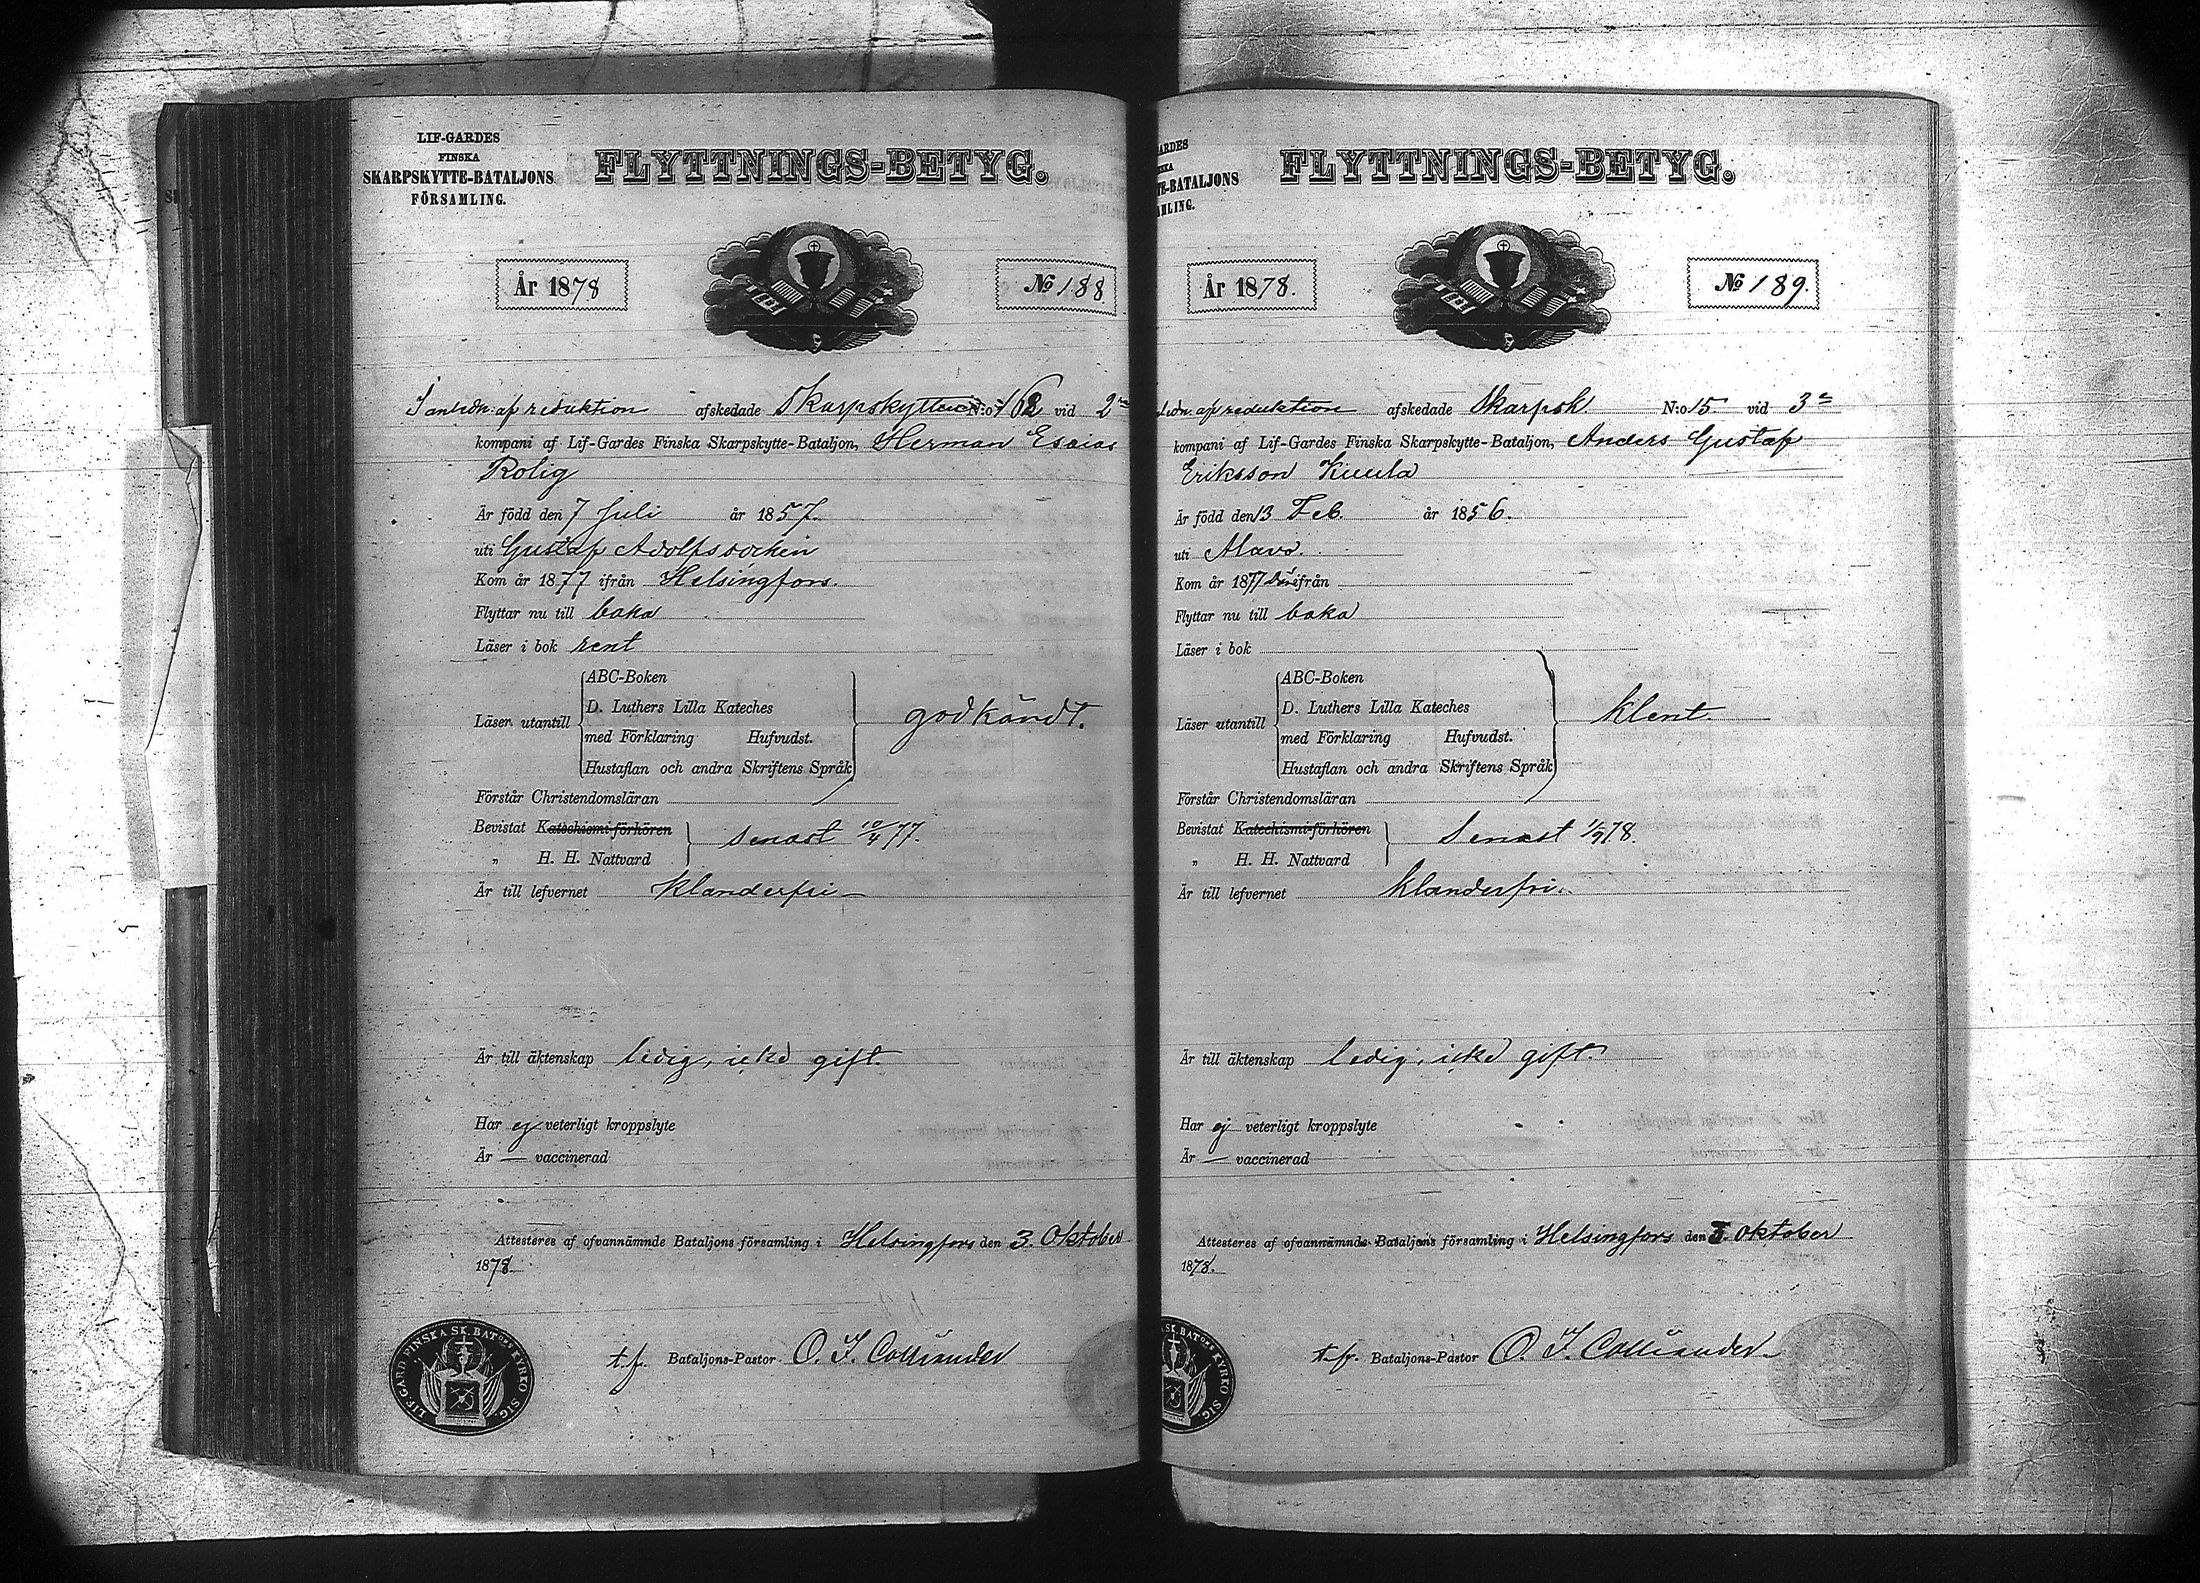 LIF-GARDES
FINSKA
SKARPSKYTTE-BATALJONS
FÖRSAMLING.
FLYTTNINGS-BETYG.
År 1878
№ 188
I anledn. af reduktion afskedade Skarpskytten N:o 162 vid 2
kompani af Lif-Gardes Finska Skarpskytte-Bataljon, Herman Esaias
Rolig
Är född den 7 Juli år 1857.
uti Gustaf Adolfssocken
Kom år 1877 ifrån Helsingfors.
Flyttar nu till baka
Läser i bok rent
ABC-Boken
D. Luthers Lilla Kateches
Läser utantill godkändt.
med Förklaring Hufvudst.
Hustaflan och andra Skriftens Språk
Förstår Christendomsläran
Bevistat Katechismi-förhören
senast 10/4 77.
„ H. H. Nattvard
Är till lefvernet klanderfri
Är till äktenskap ledig, icke gift.
Har ej veterligt kroppslyte
Är — vaccinerad
Attesteres af ofvannämnde Bataljons församling i Helsingfors den 3. Oktober
1878.
t.f. Bataljons-Pastor O. I. Colliander
LIF.GARD.FINSKA SK.BATONS KYRKO SIG.
ARDES
SKA
TE-BATALJONS
MLING.
FLYTTNINGS-BETYG.
År 1878.
№ 189.
ledn. af reduktion afskedade Skarpsk N:o 15 vid 3
kompani af Lif-Gardes Finska Skarpskytte-Bataljon, Anders Gustaf
Eriksson Kuula
Är född den 13 Feb. år 1856.
uti Alavo.
Kom år 1877 ifrån
Flyttar nu till baka
Läser i bok
ABC-Boken
D. Luthers Lilla Kateches
Läser utantill klent.
med Förklaring Hufvudst.
Hustaflan och andra Skriftens Språk
Förstår Christendomsläran
Bevistat Katechismi-förhören
senast 1/9 78.
„ H. H. Nattvard
Är till lefvernet klanderfri.
Är till äktenskap ledig, icke gift.
Har ej veterligt kroppslyte
Är — vaccinerad
Attesteres af ofvannämnde Bataljons församling i Helsingfors den Oktober
1878.
t.f. Bataljons-Pastor O. I. Colliander.
SK.BATONS KYRKO SIG.